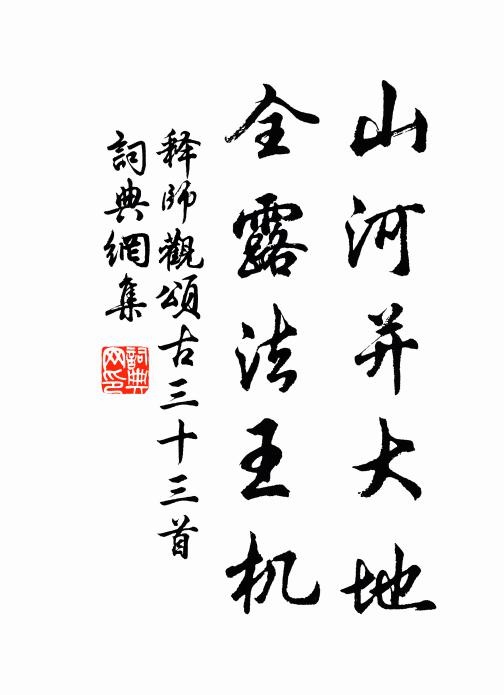 山河并大地
全露法王机
释师觀頌古三十三首
詞典網集
詞典網印